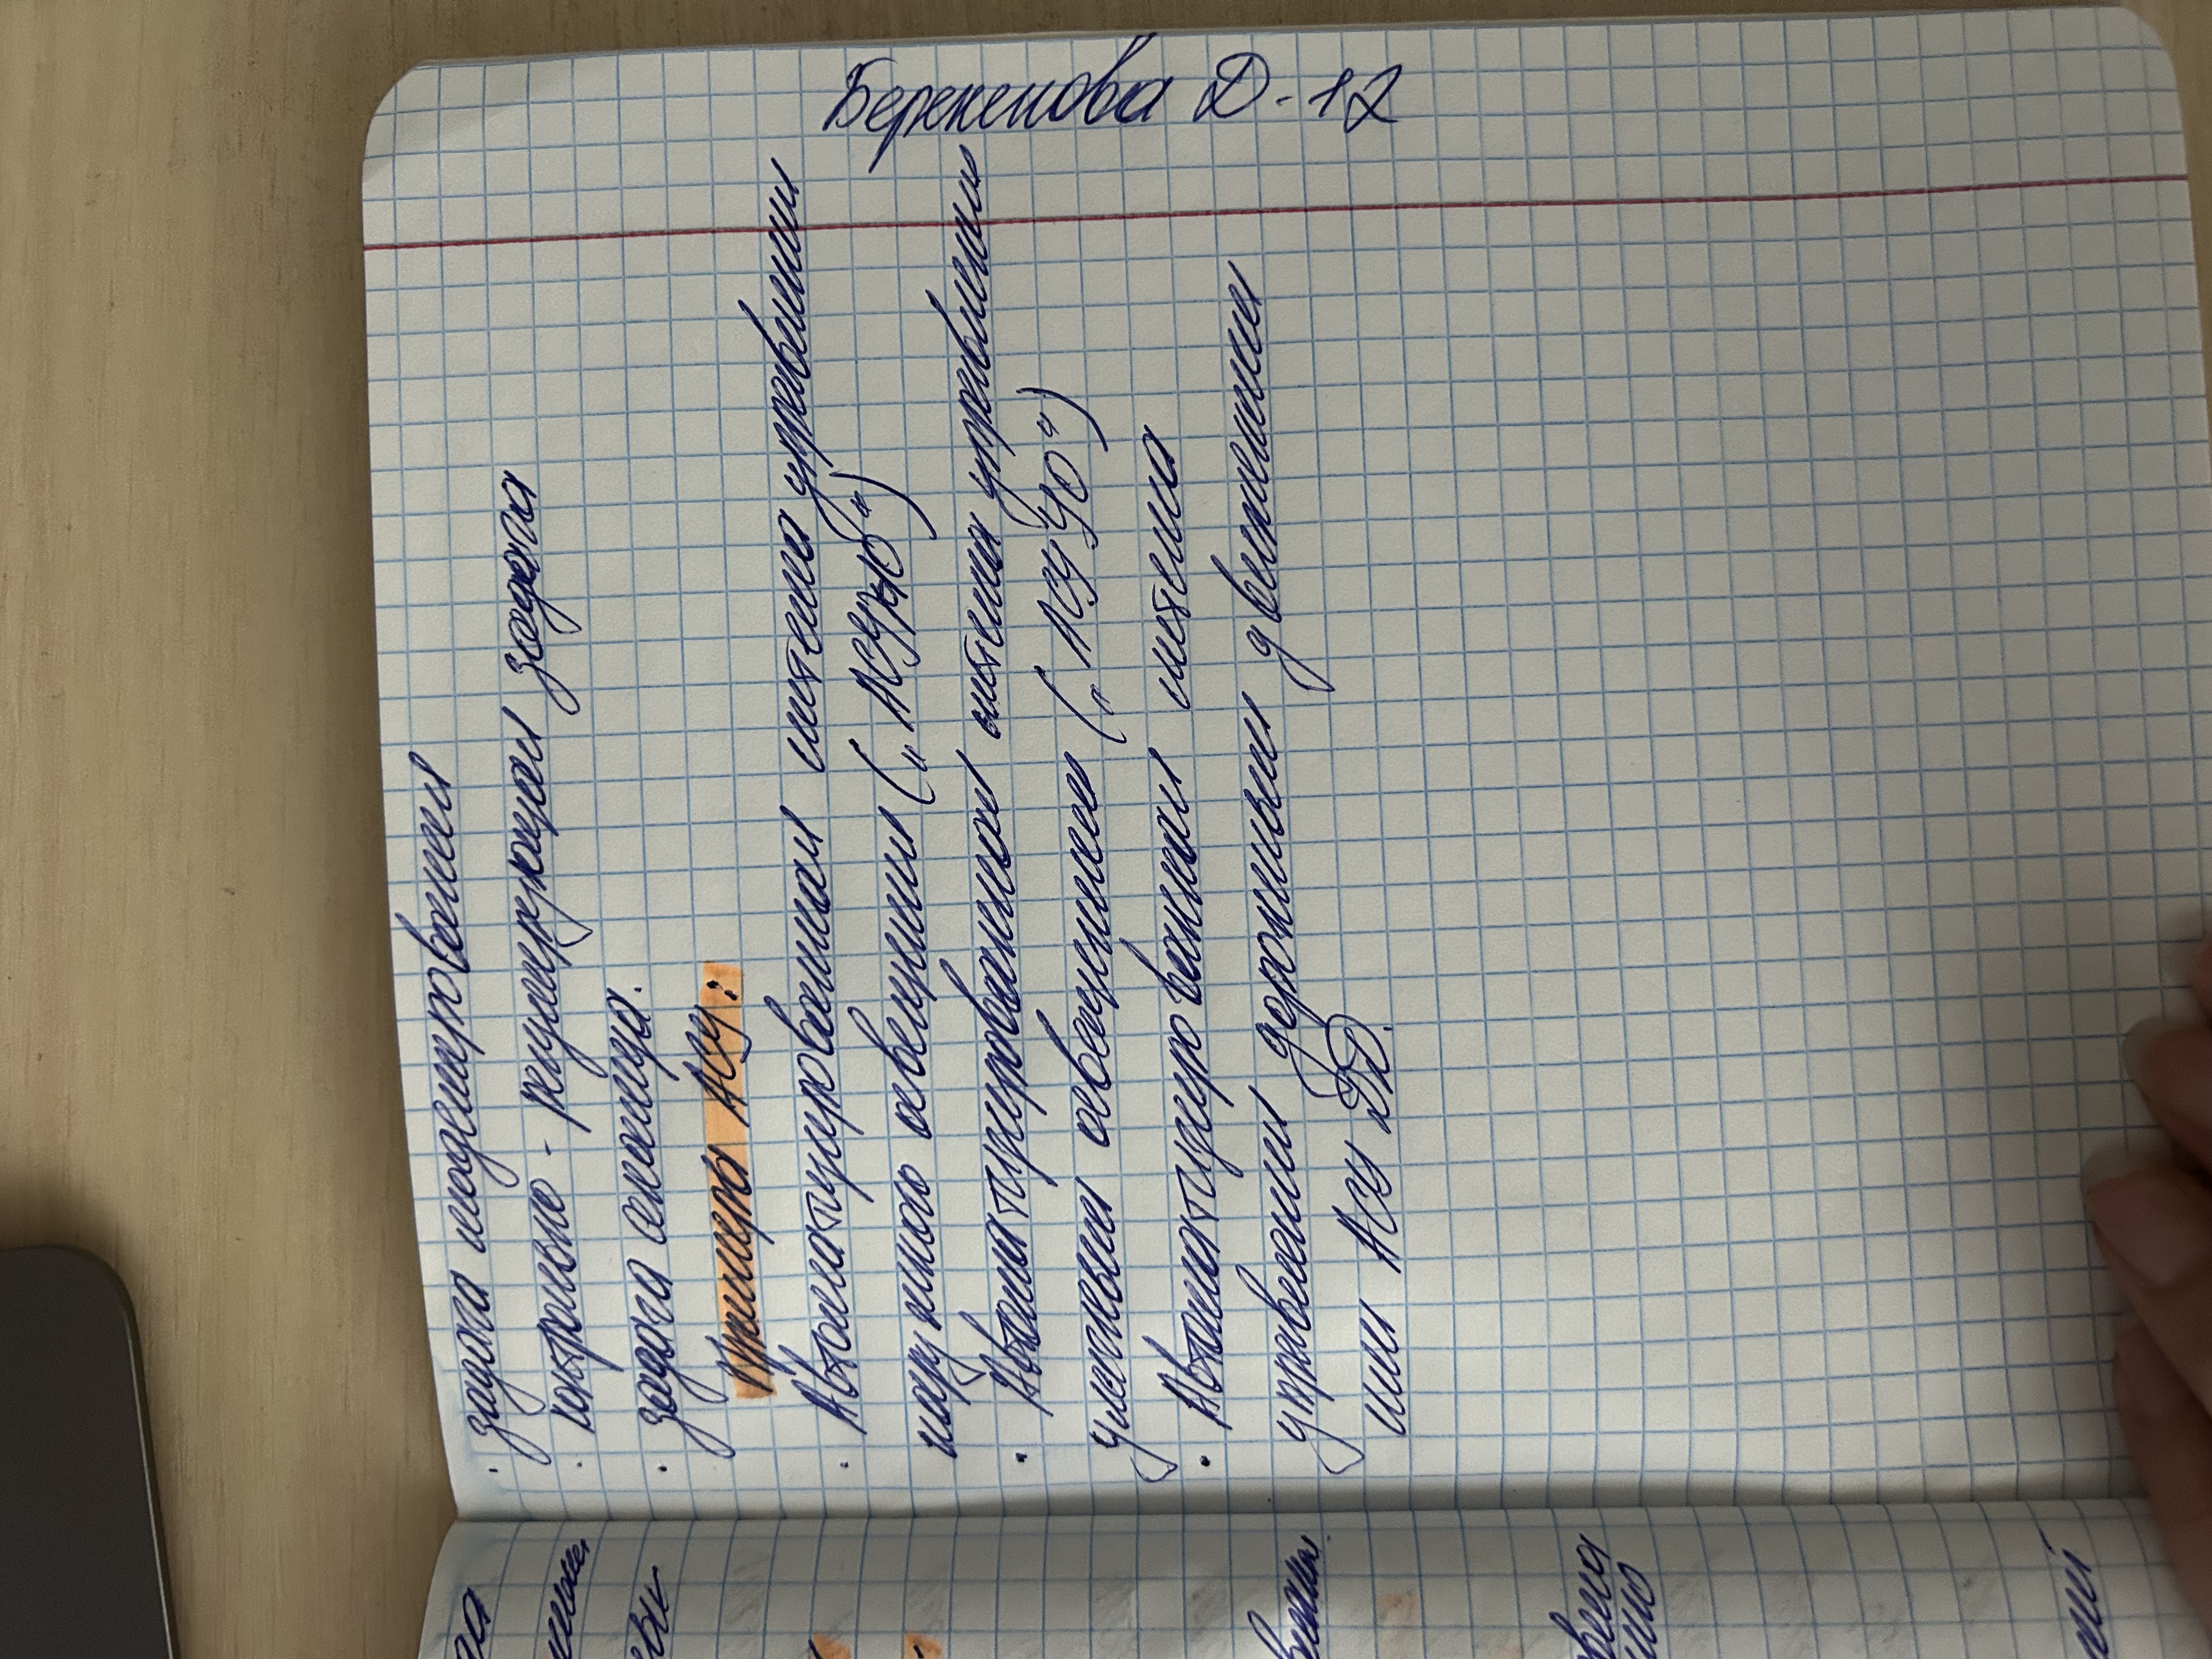 Берекенова Д-12
· задача моделирования
· контрольно - регулирующая задача
· задача анализа.
Примеры АСУ:
· Автоматизированная система управления
наружного освещения („АСУНО“)
· Автоматизированная система управления
уличным освещением („АСУ УО“)
· Автоматизированная система
управления дорожным движением
или АСУ ДД.